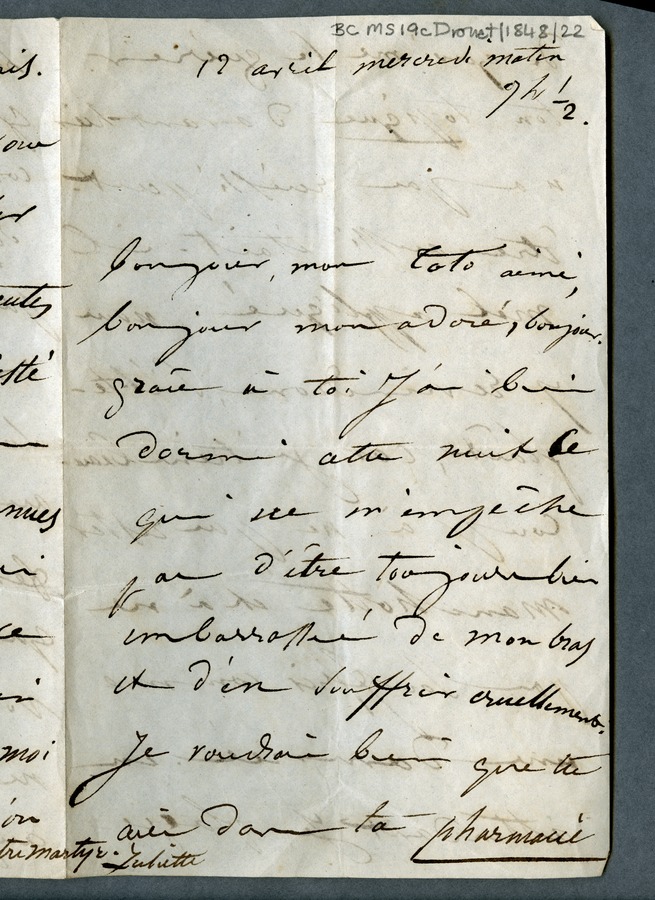 moi
martyr.
Juliette
BC MS 19c Drouet/1848/22
12 avril mercredi matin
9h ½.
bonjour, mon Toto aimé,
bonjour mon adoré, bonjour.
grâce à toi J'ai bien
dormi cette nuit Ce
qui ne m'empêche
pas d'être toujours bien
embarrassée de mon bras
et d'en souffrir cruellement.
Je voudrais bien que tu
aies dans ta pharmacie